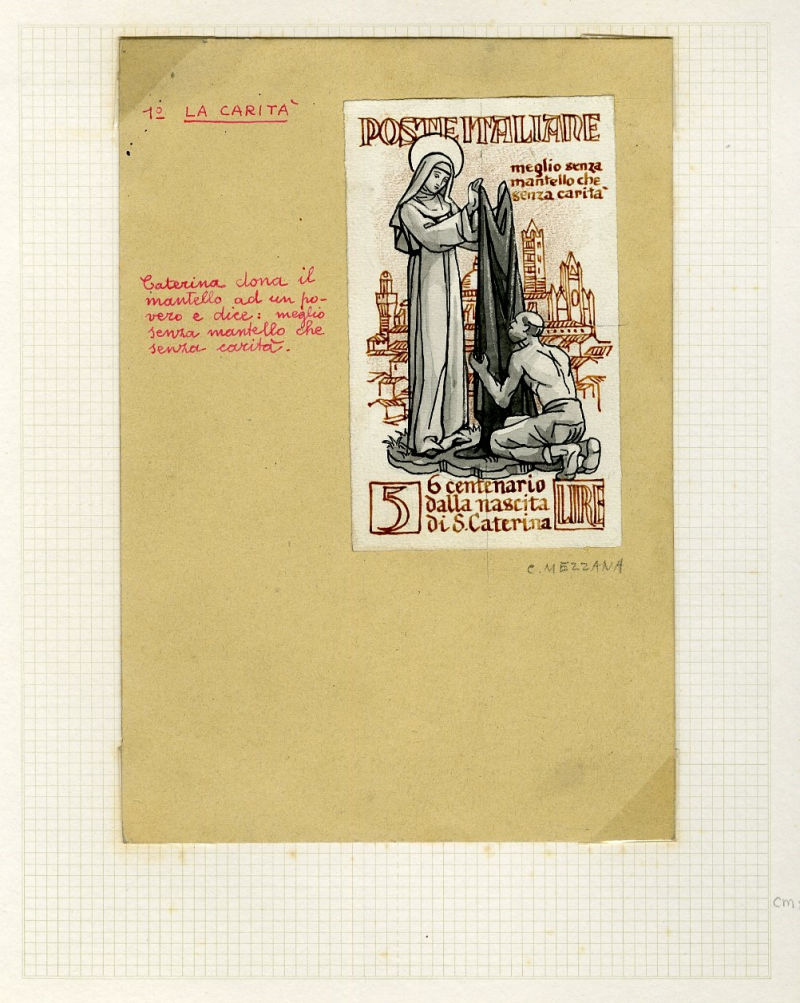 1º LA CARITÀ
Caterina dona il
mantello ad un po-
vero e dice: meglio
senza mantello che
senza carità.
POSTE ITALIANE
meglio senza
mantello che
senza carità
5
6 centenario
dalla nascita
di S. Caterina
LIRE
C. MEZZANA
cm